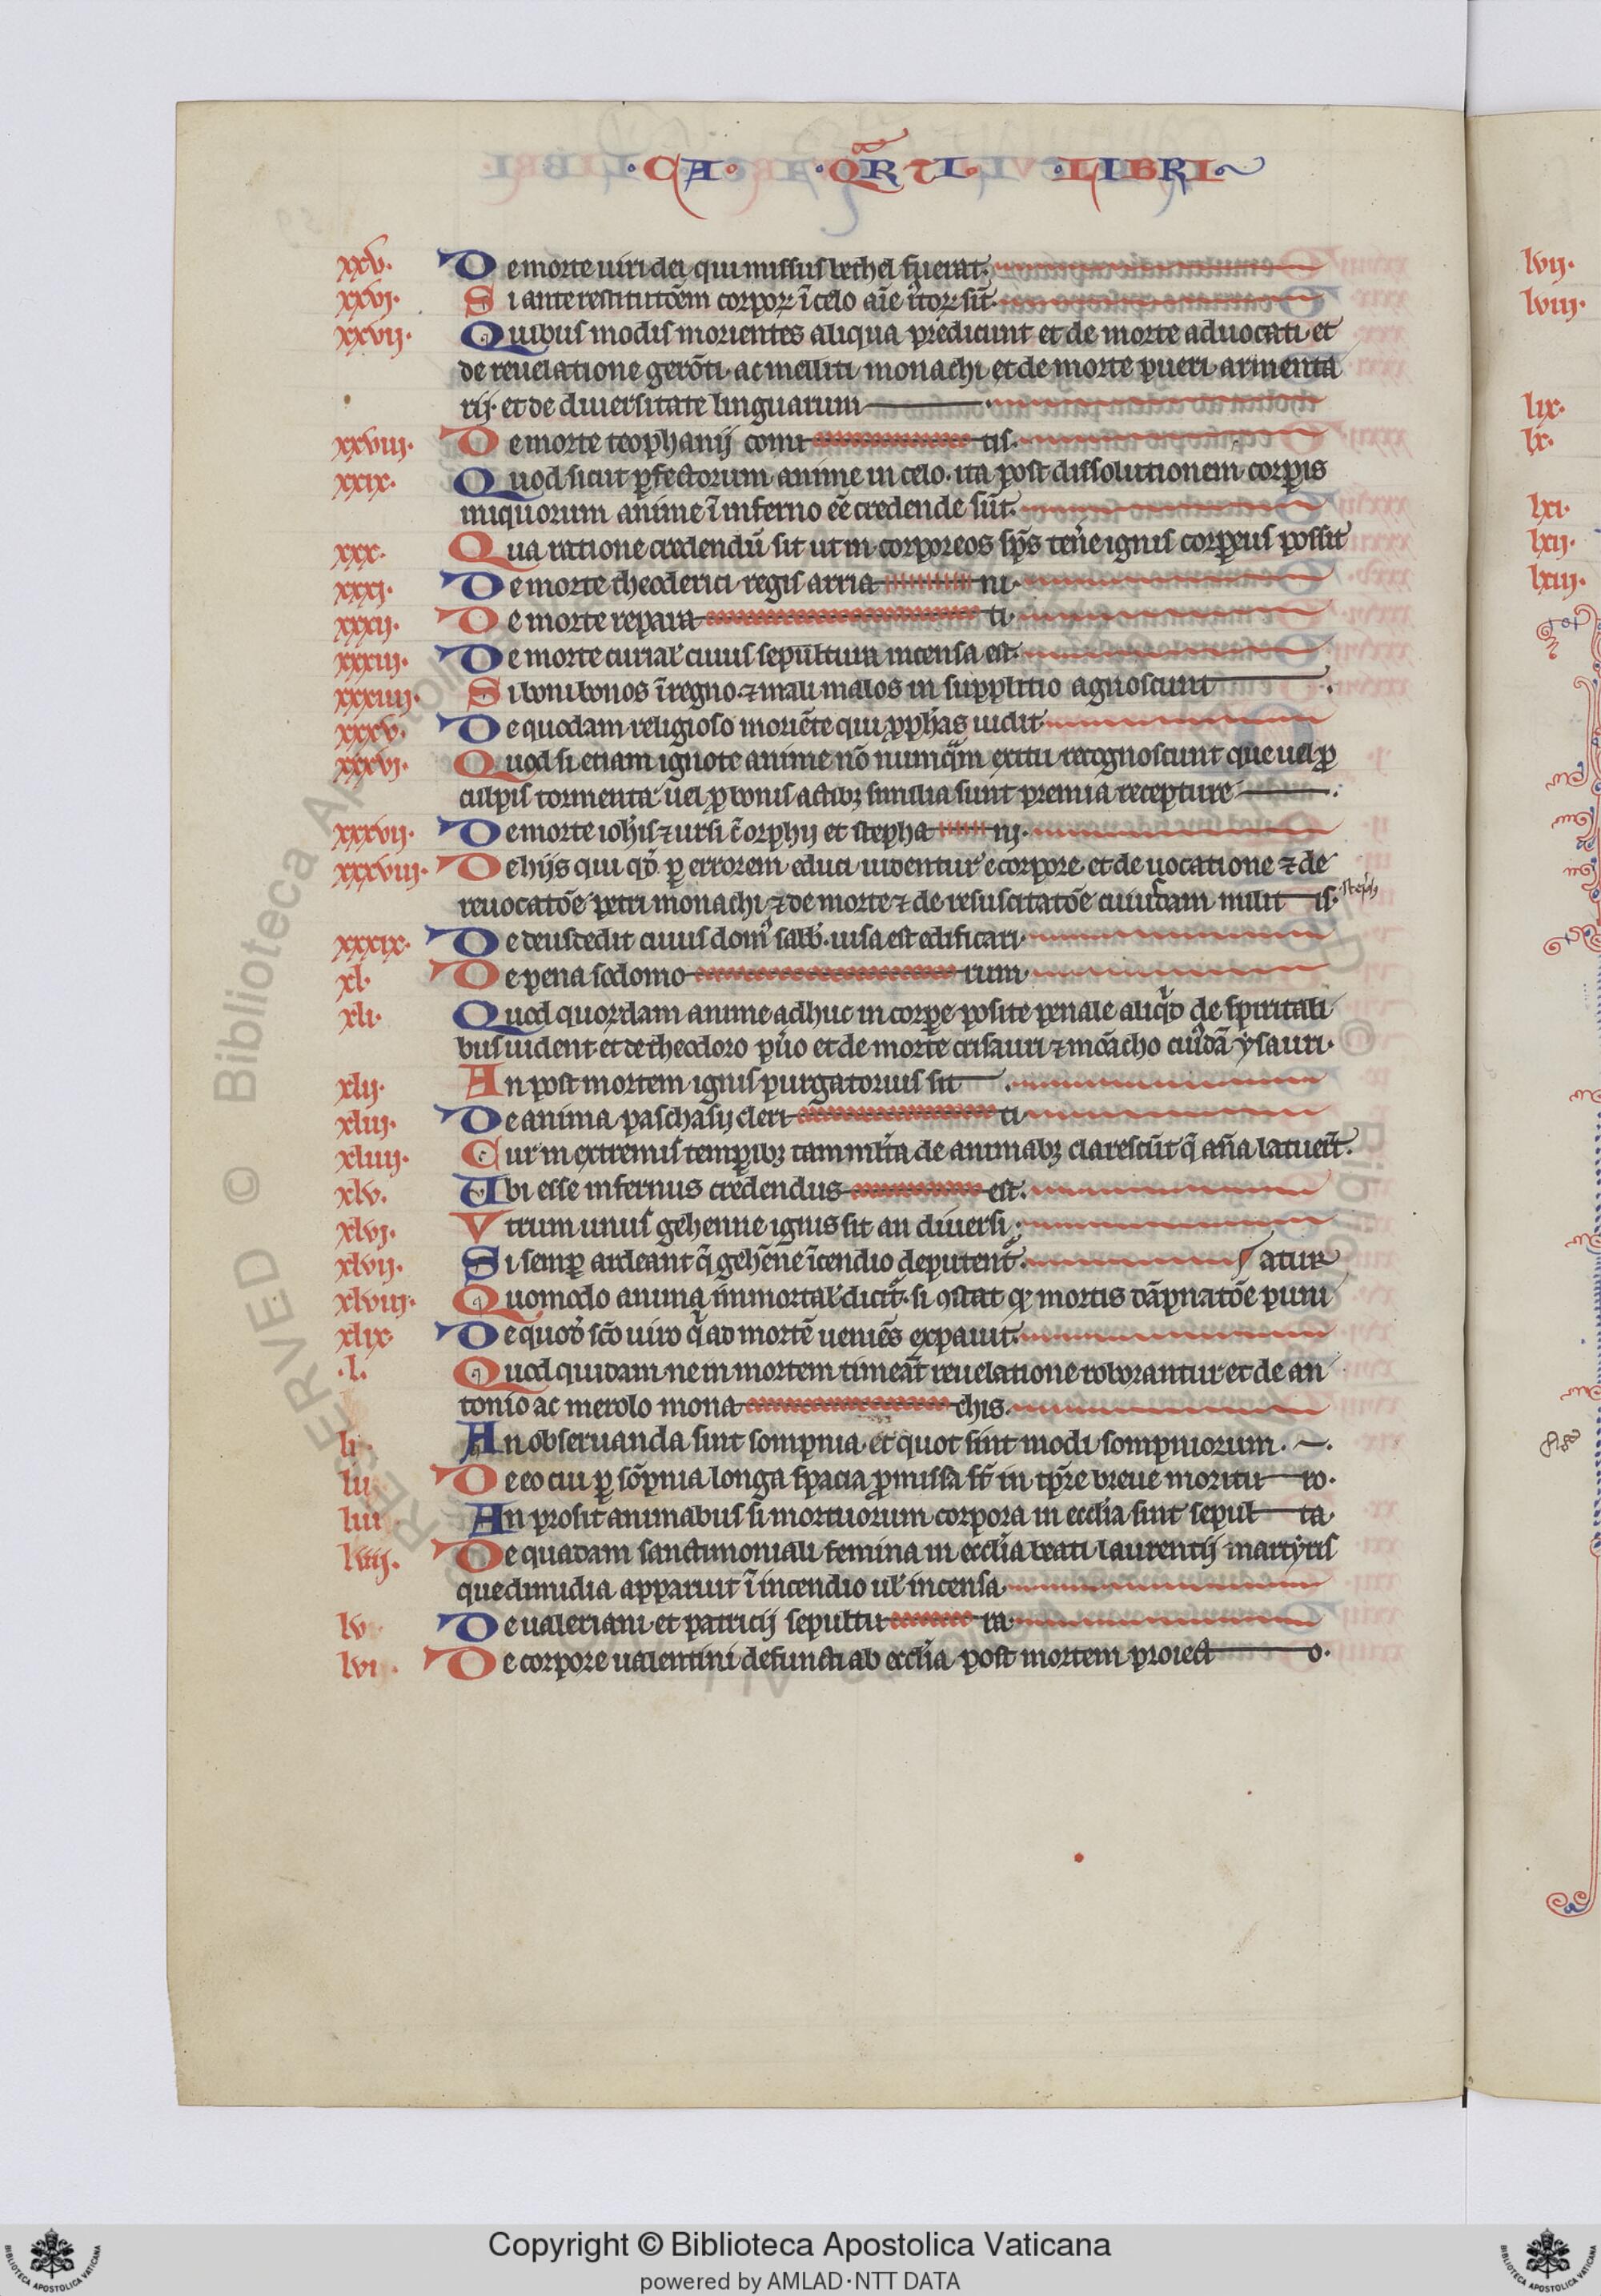 ·CA· ·QaRTI· ·LIBRI·
xxv. De morte uiri dei qui missus bethel fuerat.
xxvi. Si ante restitutōem corpoꝝ ī celo aīe iustoꝝ sūt.
xxvii. Quibus modis morientes aliqua predicunt et de morte aduocati et
de reuelatione gerōti. ac melliti monachi et de morte pueri armenta
rij. et de diuersitate linguarum
xxviii. De morte teophanij comi tis.
xxix. Quod sicut ꝑfectorum anime in celo. ita post dissolutionem corꝑis
iniquorum anime ī inferno eē credende sūt.
xxx. Qua ratione credendū sit ut in corporeos sp̄s tenere ignis corꝑeus possit
xxxi. De morte theoderici regis arria ni.
xxxii. De morte repara ti.
xxxiii. De morte curial' cuius sepultura incensa est.
xxxiiii. Si boni bonos ī regno ⁊ mali malos in supplitio agnoscunt
xxxv. De quodam religioso moriēte qui ꝓph'as uidit
xxxvi. Quod si etiam ignote anime nō numq̄m exitu recognoscunt que uel ꝓ
culpis tormenta uel ꝓ bonis actibꝫ similia sunt premia recepture
xxxvii. De morte ioh'is ⁊ ursi eumorphij et stepha nij.
xxxviii. De hijs qui qͦ ꝑ errorem educi uidentur e corpore. et de uocatione ⁊ de
reuocatōe petri monachi ⁊ de morte ⁊ de resuscitatōe cuiusdam milit is. steph'
xxxix. De deusdedit cuius domus sabb. uisa est edificari.
xl. De pena sodomo rum
xli. Quod quorundam anime adhuc in corꝑe posite penale aliqd de spiritali
bus uident et de theodoro puero et de morte crisauri ⁊ mōacho cuiusdā ysauri.
xlii. An post mortem ignis purgatorius sit
xliii. De anima paschasij cleri ci
xliiii. Cur in extremis temporibꝫ tam multa de animabꝫ clarescūt q̄ añ latuerūt.
xlv. Ubi esse infernus credendus est.
xlvi. Vtrum unus gehenne ignis sit an diuersi.
xlvii. Si semꝑ ardeant q̄ gehēne īcendio deputentur. atur
xlviii. Quomodo anima immortal' dicitur. si ꝯstat qꝫ mortis dāpnatōe puni
xlix. De quodam sc̄o uiro q̄ ad mortē ueniēs expauit.
.l. Quod quidam ne in mortem timeāt reuelatione roborantur et de an
tonio ac merolo mona chis.
li. An obseruanda sint sompnia. et quot sint modi sompniorum.
lii. De eo cui ꝑ sōpnia longa spacia ꝓmissa sūt in tp̄re breue moritu ro.
liii. An prosit animabus si mortuorum corpora in ecclīa sint sepul ta.
liiii. De quadam sanctimoniali femina in ecclīa beati laurentij martyris
que dimidia apparuit ī incendio ul' incensa
lv. De ualeriani et patricij sepultu ra.
lvi. De corpore ualentini defuncti ab ecclīa post mortem proiect o.
lvii.
lviii.
lix.
lx.
lxi.
lxii.
lxiii.
Copyright © Biblioteca Apostolica Vaticana
powered by AMLAD·NTT DATA